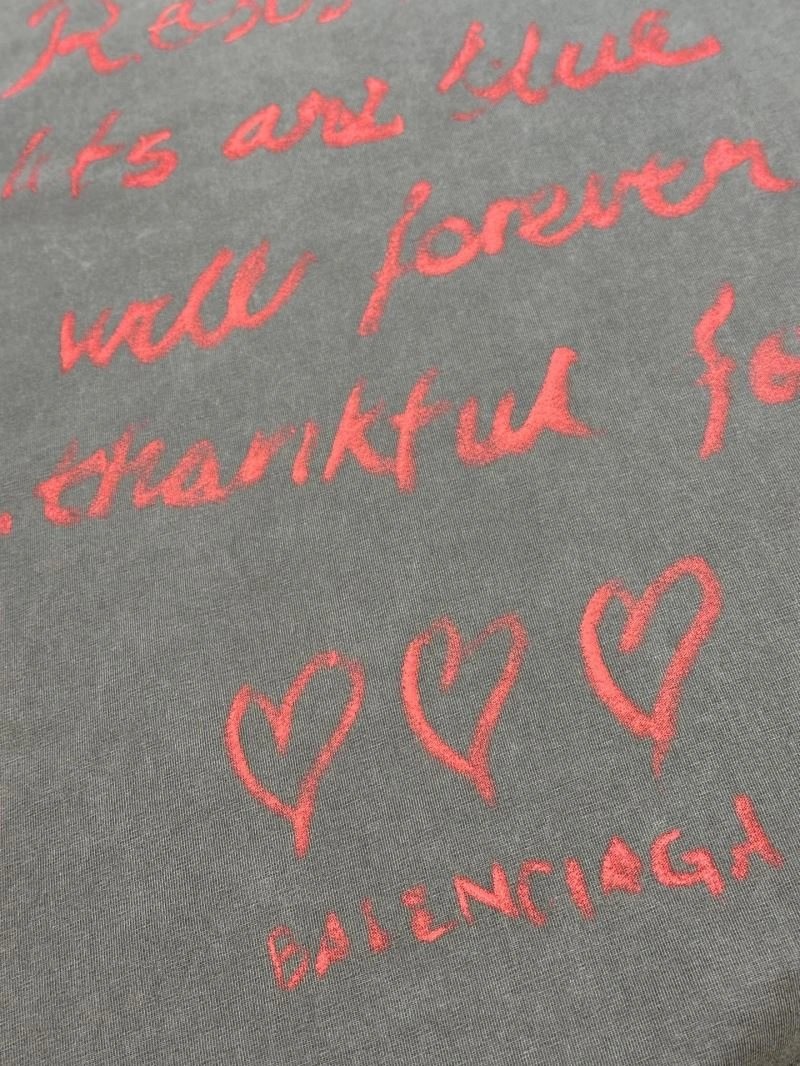 are blue
will forever
thankful
BALENCIAGA